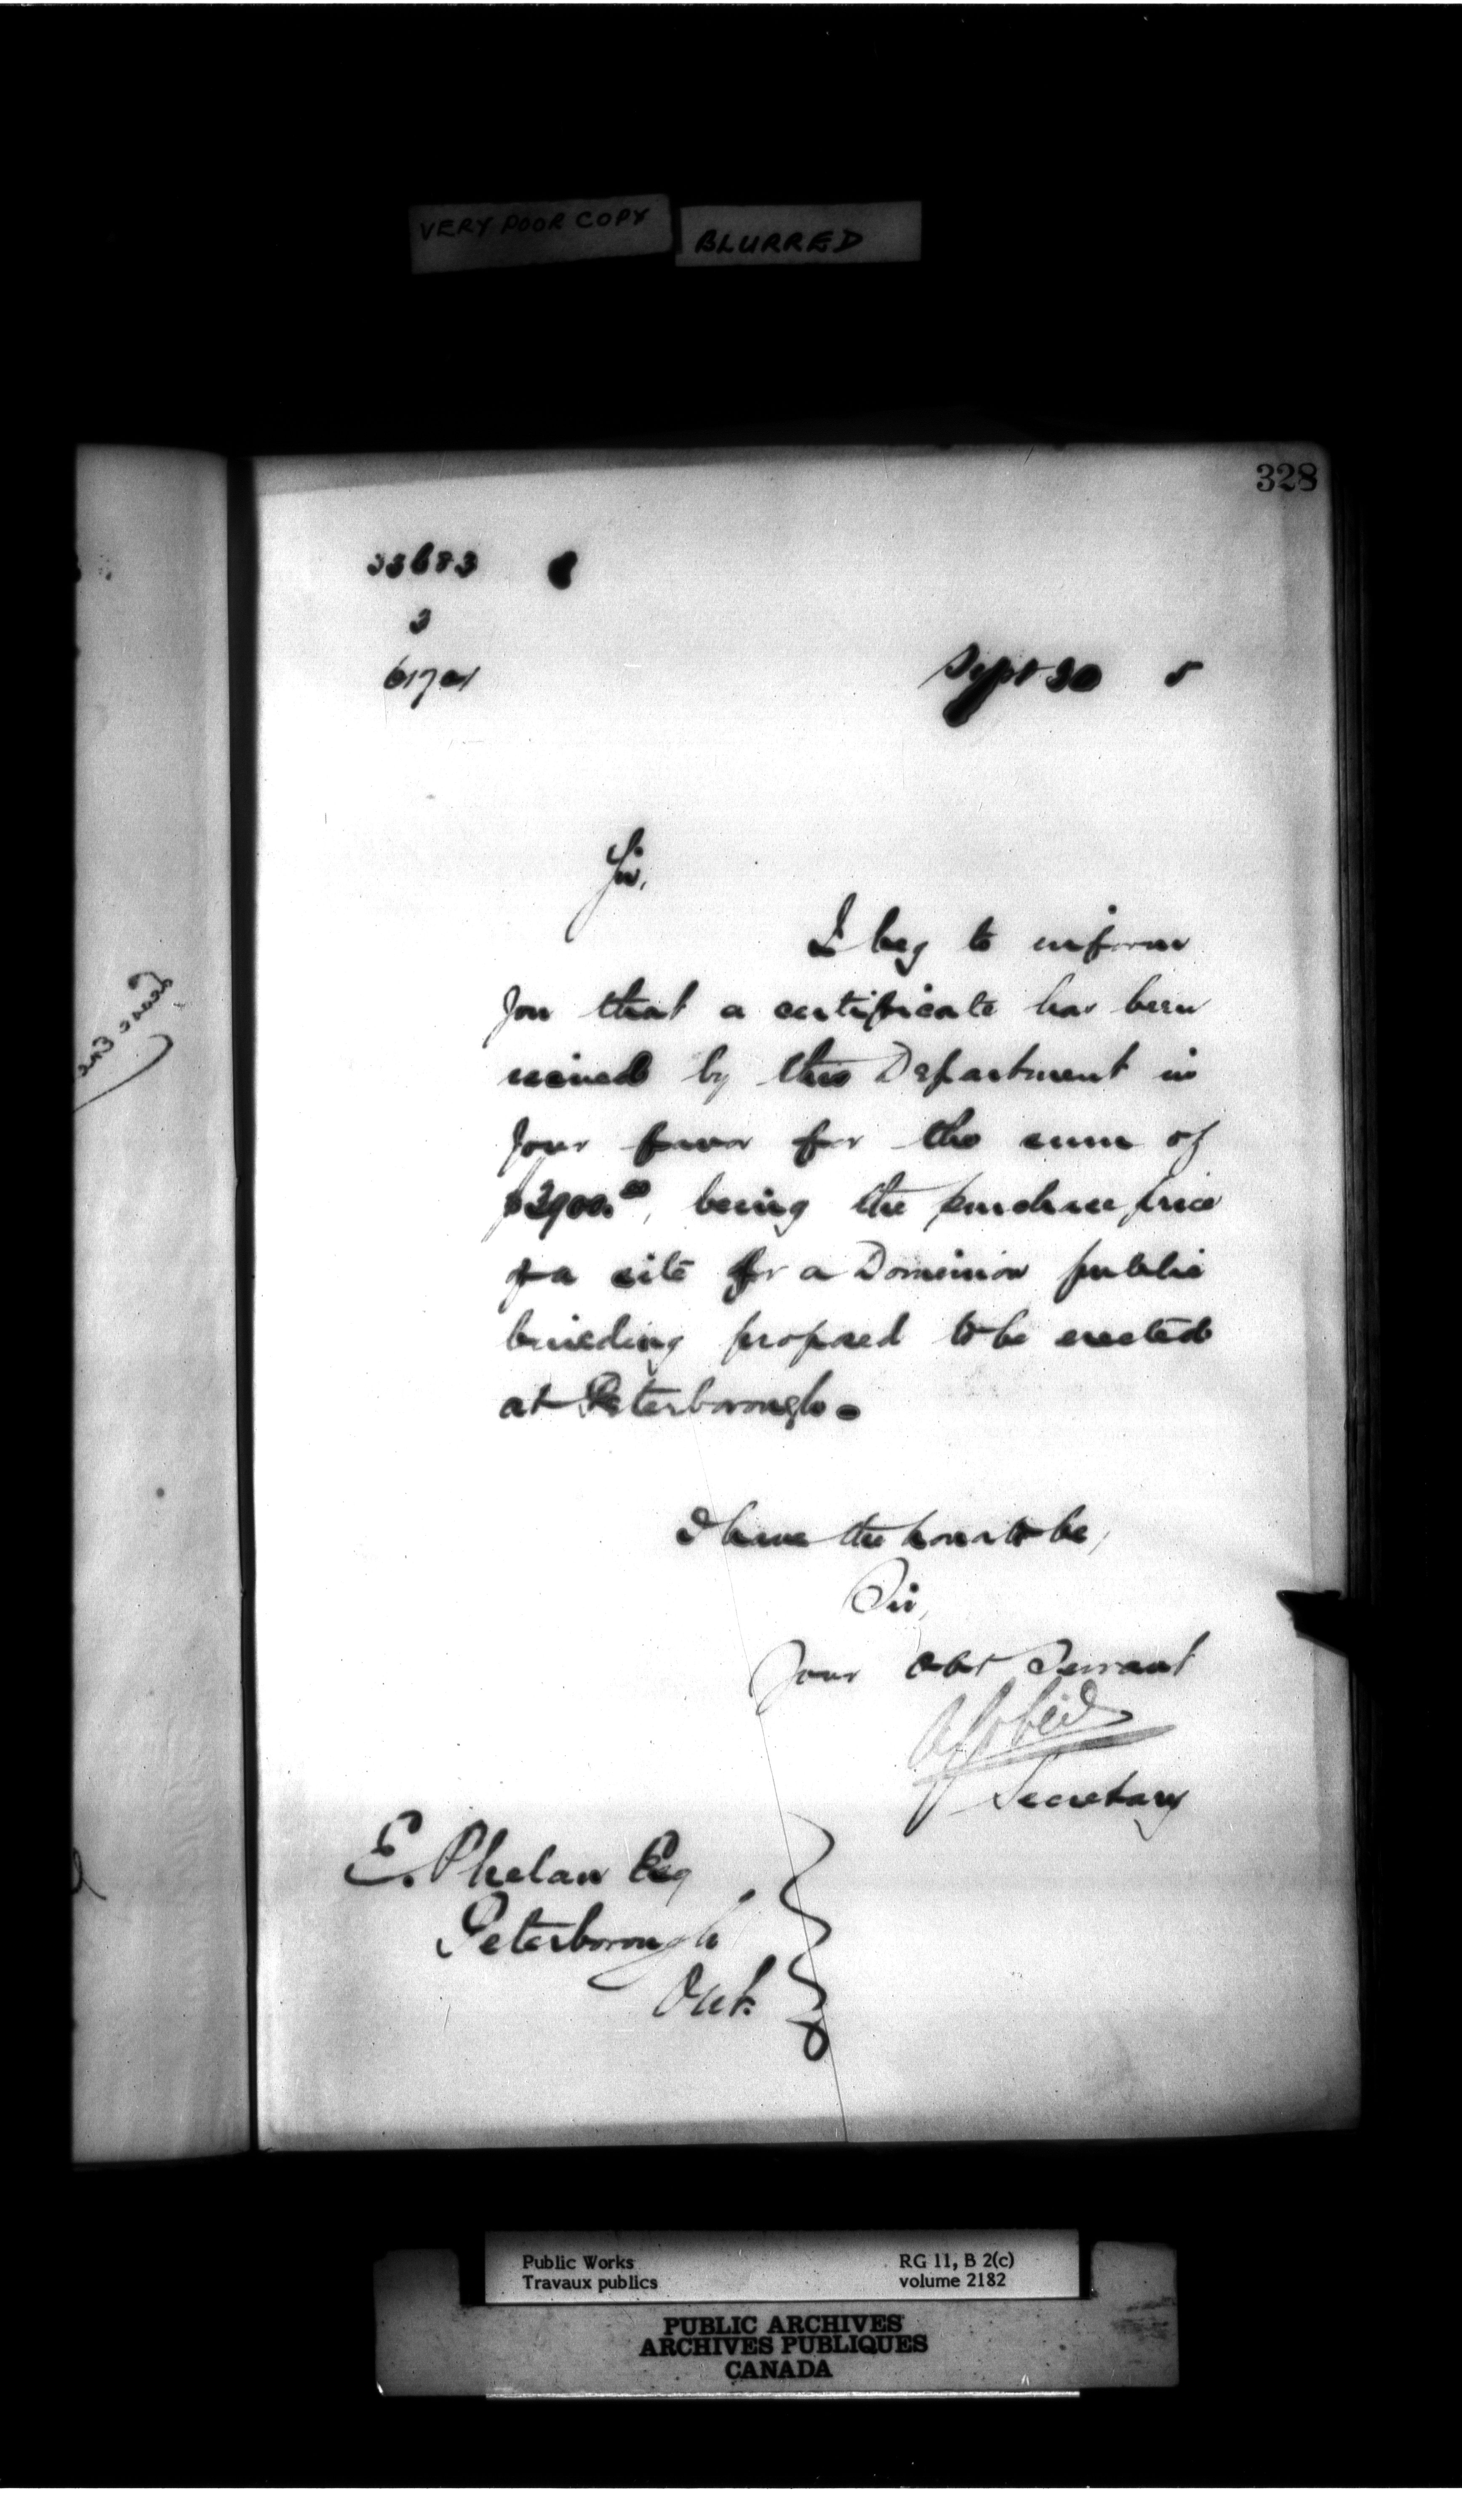 VERY POOR COPY
BLURRED
328
33683
3
61701
Sept 30 5
Sir,
I beg to inform
you that a certificate has been
issued by this Department in
your favor for the sum of
$3900.00, being the purchase price
of a site for a Dominion public
building proposed to be erected
at Peterborough.
I have the honor to be,
Sir,
Your Obt Servant
Secretary
E. Phelan Esq
Peterborough
Ont.
Public Works
Travaux publics
RG 11, B 2(c)
volume 2182
PUBLIC ARCHIVES
ARCHIVES PUBLIQUES
CANADA